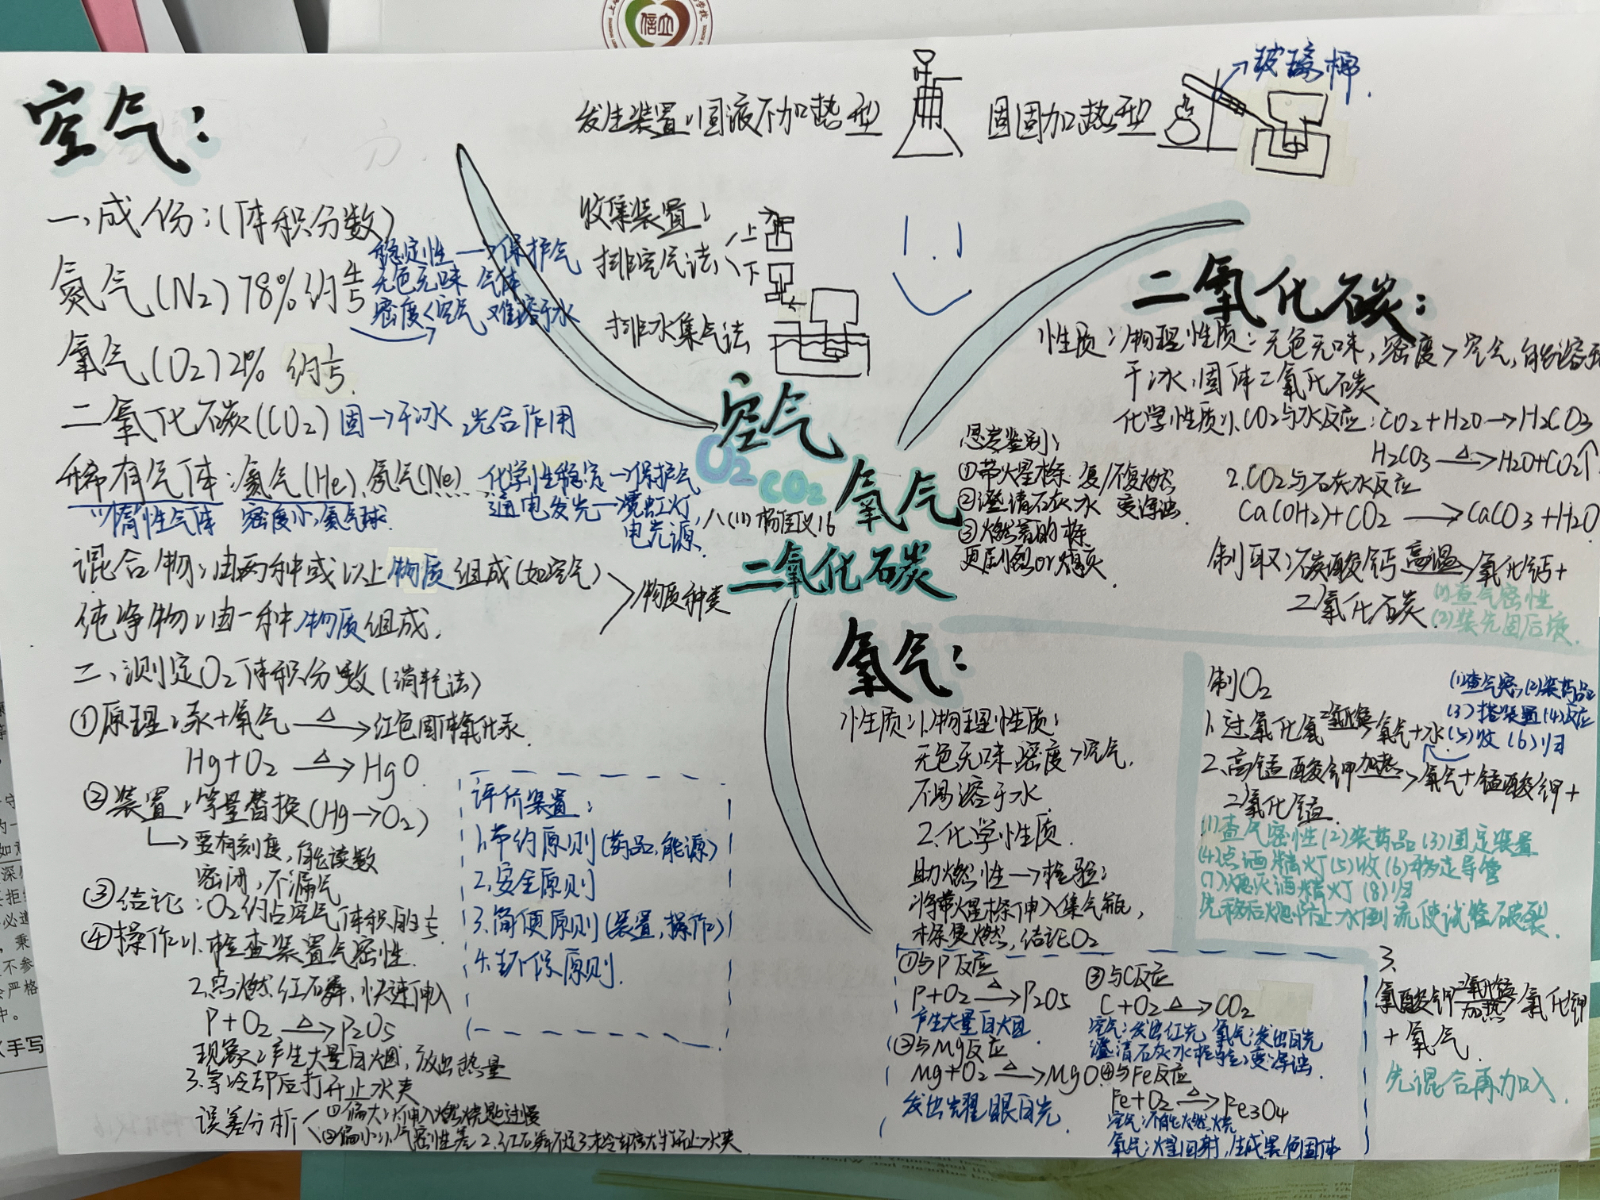 空气:
一、成份:(体积分数)
氮气(N2)78%约4/5
稳定性→保护气
无色无味 气体
密度<空气 难溶于水
氧气(O2)21% 约1/5
二氧化碳(CO2)固→干冰 光合作用
稀有气体:氦气(He)、氖气(Ne)
化学性稳定→保护气
通电发光→霓虹灯,
电光源.
惰性气体 密度小,氦气球.
混合物:由两种或以上物质组成(如空气)
纯净物:由一种物质组成.
物质种类
二、测定O2体积分数(消耗法)
①原理:汞+氧气 △→ 红色固体氧化汞.
Hg+O2 △→ HgO.
②装置:等量替换(Hg→O2)
要有刻度,能读数
密闭,不漏气
③结论:O2约占空气体积的1/5
④操作:1.检查装置气密性.
2.点燃红石磷,快速伸入
P+O2 △→P2O5
现象:产生大量白烟,放出热量
3.等冷却后打开止水夹
误差分析
①偏大:伸入燃烧匙过慢
②偏小:1.气密性差2.红石磷不足3.未冷却
评价装置:
1.节约原则(药品,能源)
2.安全原则
3.简便原则(装置,操作)
4.环保原则.
发生装置:固液不加热型
固固加热型
玻璃棉.
收集装置:
排空气法:
上
下
排水集气法
空气
O2
CO2
氧气
八(11) 16
二氧化碳
二氧化碳:
性质:物理性质:无色无味,密度>空气,能溶于
干冰:固体二氧化碳
化学性质:1.CO2与水反应:CO2+H2O→H2CO3
H2CO3 △→H2O+CO2↑
2.CO2与石灰水反应
Ca(OH2)+CO2→CaCO3+H2O
制取:碳酸钙 高温→氧化钙+
二氧化碳.
(1)查气密性
(2)装先固后液.
鉴别:
①带火星木条 复/不复燃
②澄清石灰水 变浑浊.
③燃着的木条
更剧烈or熄灭
氧气:
性质:1.物理性质:
无色无味 密度>空气.
不易溶于水.
2.化学性质.
助燃性→检验:
将带火星木条伸入集气瓶,
木条复燃,结论O2
①与P反应
P+O2 △→P2O5
产生大量白烟
②与Mg反应
Mg+O2 △→MgO
发出耀眼白光.
③与C反应
C+O2 △→CO2
空气:发出红光 氧气:发出白光
澄清石灰水检验:变浑浊.
④与Fe反应
Fe+O2 △→Fe3O4
空气:不能燃烧
氧气:火星四射,生成黑色固体
制O2
1.过氧化氢 二氧化锰→氧气+水
(1)查气密,(2)装药品
(3)搭装置(4)反应
(5)收(6)归
2.高锰酸钾 加热→氧气+锰酸钾+
二氧化锰.
(1)查气密性(2)装药品(3)固定装置
(4)点酒精灯(5)收(6)移走导管
(7)熄灭酒精灯(8)归
先移后熄:防止水倒流使试管破裂.
3.
氯酸钾 二氧化锰 加热→氯化钾
+氧气.
先混合再加入
信立
手写